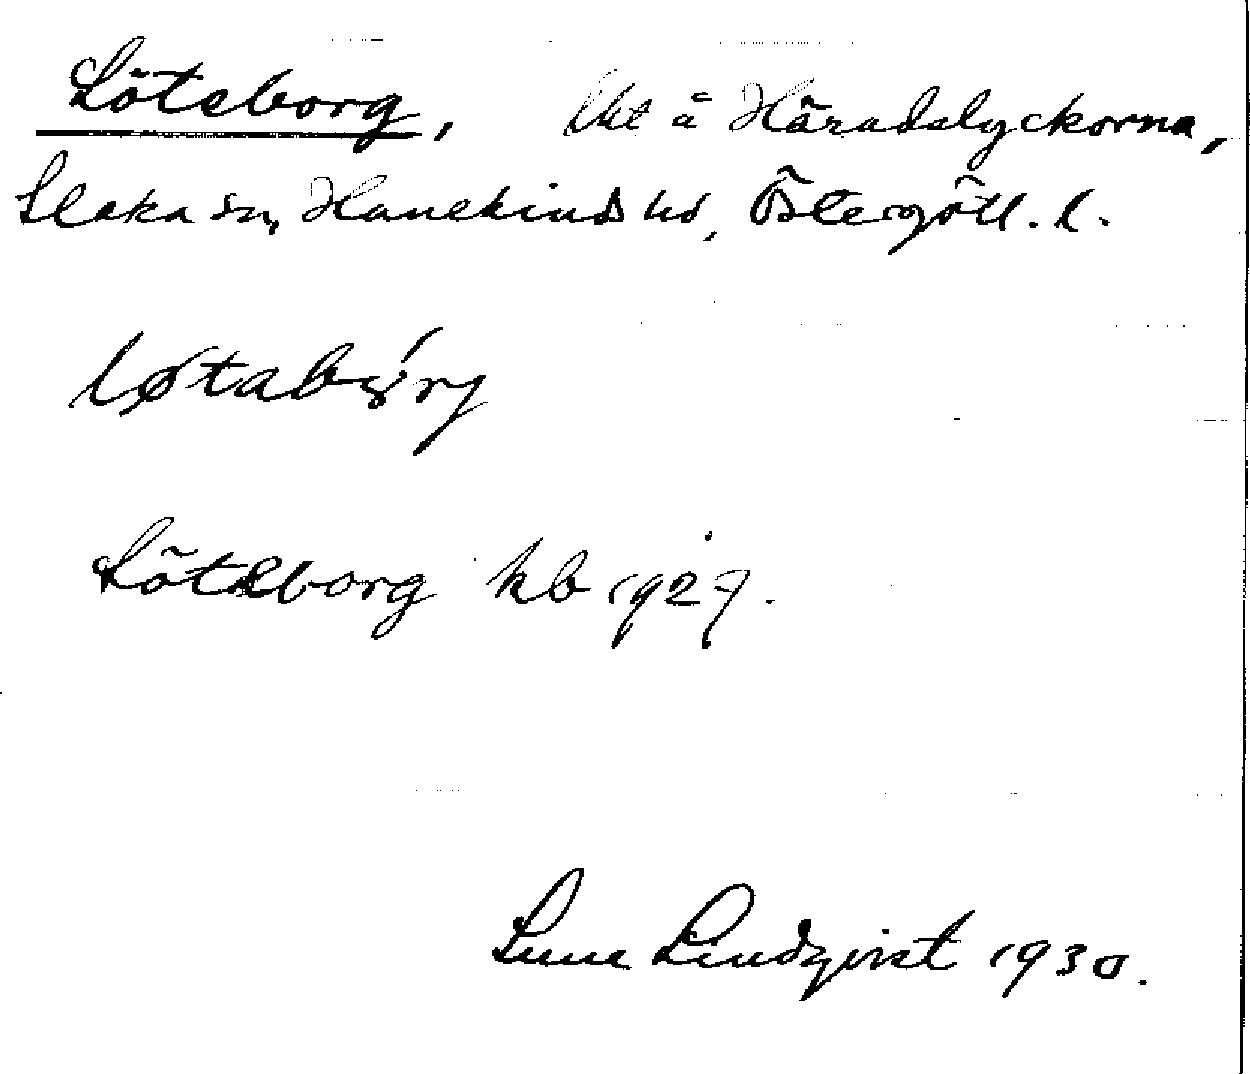 Löteborg, Vkt å Häradslyckorna,
Slaka sn, Hanekinds hd, Östergötl. l.
løtabꜿ́rj
Löteborg kb 1927.
Sune Lindqvist 1930.